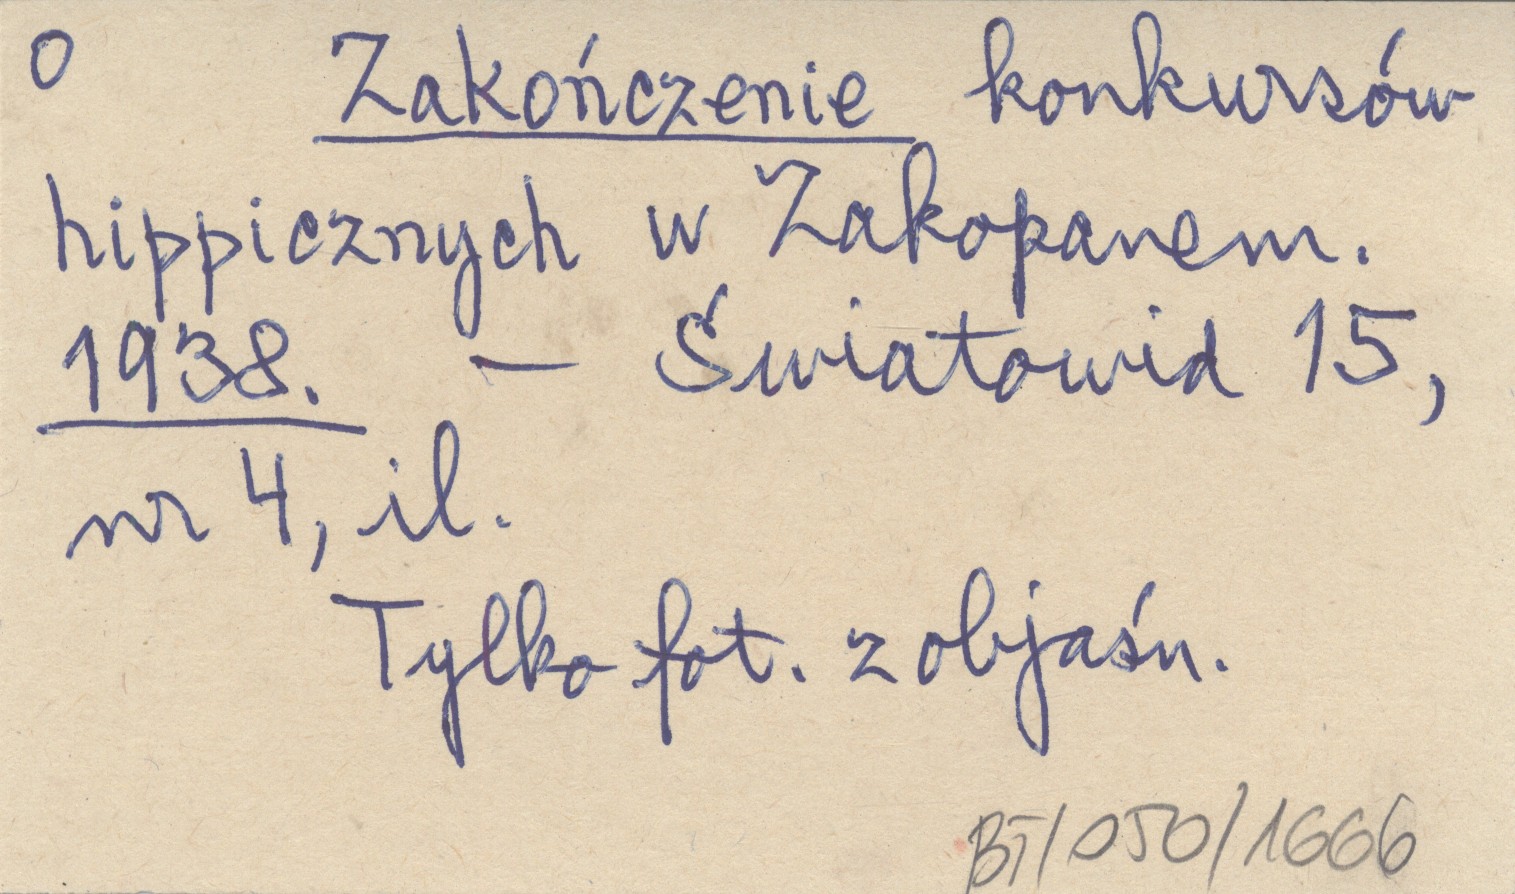 O Zakończenie konkursów
hippicznych w Zakopanem.
1938. — Światowid 15,
nr 4, il.
Tylko fot. z objaśn.
BT/050/1666